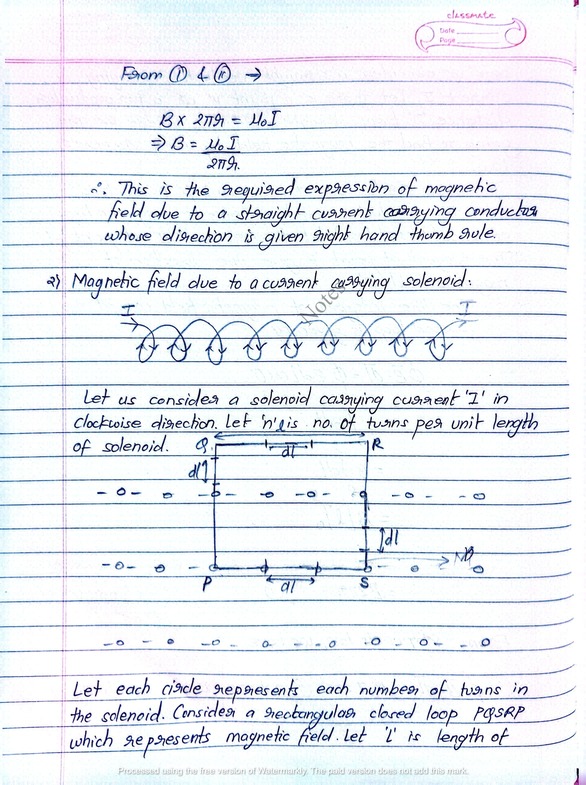 classmate
Date
Page
From (I) & (II) →
B × 2πr = μ₀I
⇒ B = μ₀I
2πr.
∴ This is the required expression of magnetic
field due to a straight current carrying conductor
whose direction is given right hand thumb rule.
2) Magnetic field due to a current carrying solenoid:
I I
Notes
Let us consider a solenoid carrying current 'I' in
clockwise direction. Let 'n' is no. of turns per unit length
of solenoid. Q l R
dl
dl
dl
P dl S
Let each circle represents each number of turns in
the solenoid. Consider a rectangular closed loop PQSRP
which represents magnetic field. Let 'L' is length of
Processed using the free version of Watermarkly. The paid version does not add this mark.